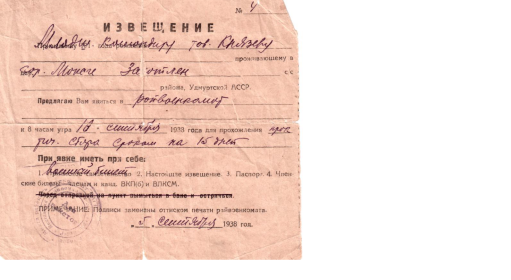 № 4
ИЗВЕЩЕНИЕ
Младш. командиру тов. Князеву
проживающему в
гор. Можге
района, Удмуртской АССР.
Предлагаю Вам явиться в
к 8 часам утра 12 сентября 1938 года для прохождения
сбора сроком на 15 дней
При явке иметь при себе:
1. военный билет 2. Настоящее извещение. 3. Паспорт 4. Член-
ские билеты членам и канд. ВКП(б) и ВЛКСМ.
Перед отправкой на пункт вымыться в бане и остричься.
ПРИМЕЧАНИЕ: Подписи заменены оттиском печати райвоенкомата.
5 сентября 1938 год.